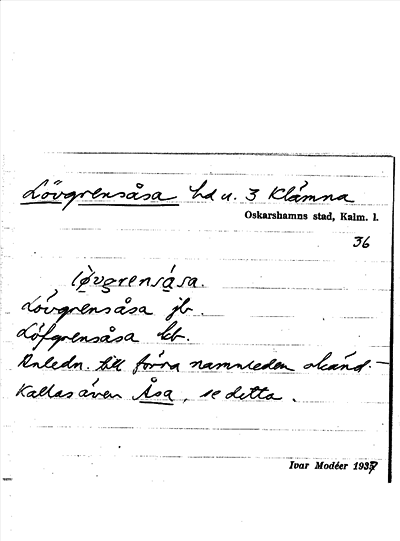 Lövgrensåsa hd u. 3 Klämna
Oskarshamns stad, Kalm. l.
36
Lövgrensåsa jb.
Löfgrensåsa kb.
Anledn. till förra namnleden okänd.—
Kallas även Åsa, se detta.
Ivar Modéer 1937